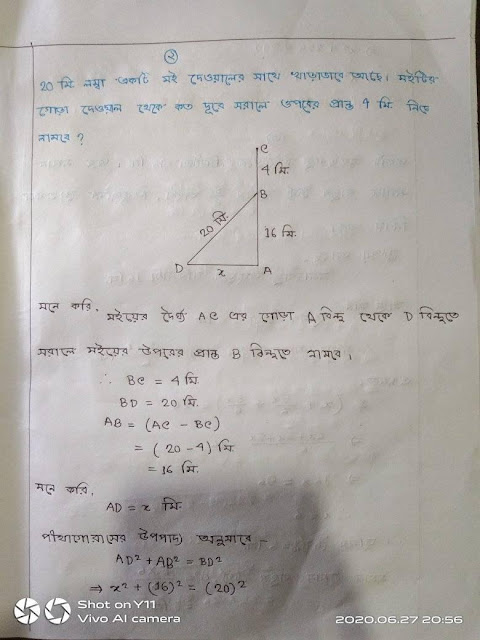 ২
20 মি লম্বা একটি মই দেওয়ালের সাথে খাড়াভাবে আছে। মইটির
গোড়া দেওয়াল থেকে কত দূরে সরালে উপরের প্রান্ত 4 মি নিচে
নামবে ?
C
4 মি.
B
20 মি.
16 মি.
D
x
A
মনে করি, মইয়ের দৈর্ঘ্য AC এর গোড়া A বিন্দু থেকে D বিন্দুতে
সরালে মইয়ের উপরের প্রান্ত B বিন্দুতে নামবে।
∴ BC = 4 মি
BD = 20 মি.
AB = (AC - BC)
= (20-4) মি
= 16 মি.
মনে করি,
AD = x মি.
পীথাগোরাসের উপপাদ্য অনুসারে -
AD² + AB² = BD²
⇒ x² + (16)² = (20)²
Shot on Y11
Vivo AI camera
2020.06.27 20:56